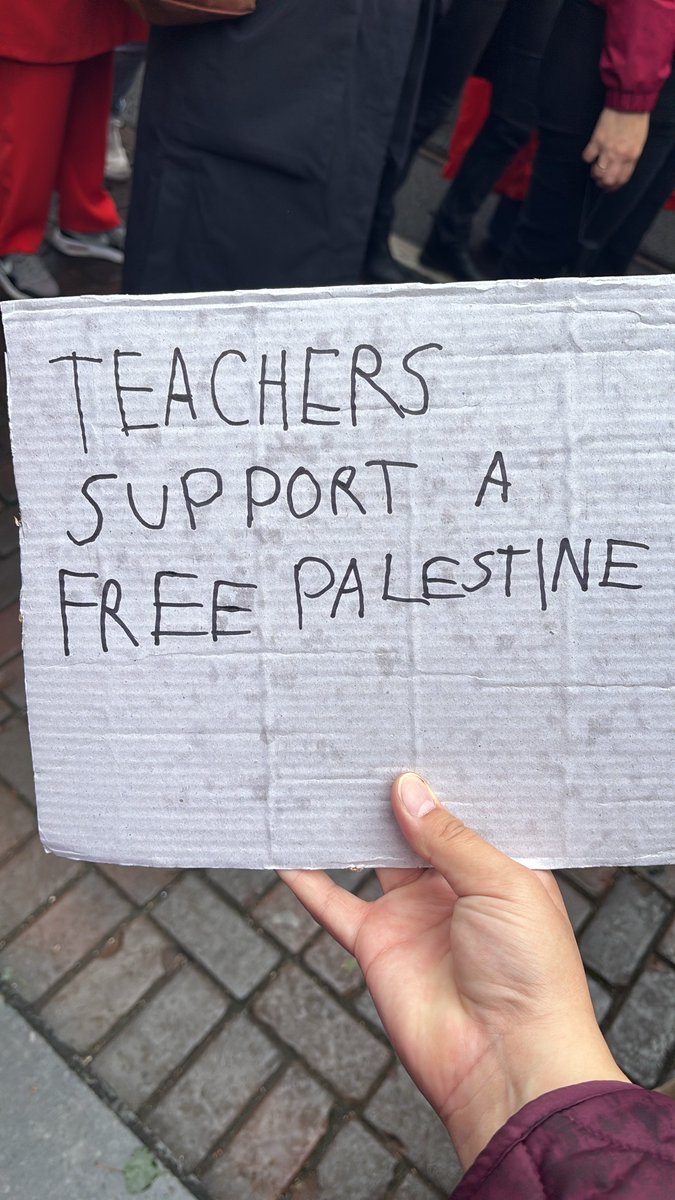 TEACHERS
SUPPORT A
FREE PALESTINE